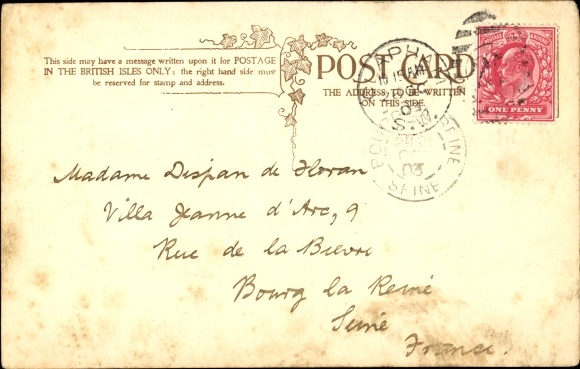 This side may have a message written upon it for POSTAGE
IN THE BRITISH ISLES ONLY: the right hand side must
be reserved for stamp and address.
POST CARD
THE ADDRESS TO BE WRITTEN
ON THIS SIDE.
10 15 AM
03
S.W.
03
SEINE
ONE PENNY
Madame Dispan de Floran
Villa Jeanne d'Arc, 9
Rue de la Bievre
Bourg la Reine
Seine
France.